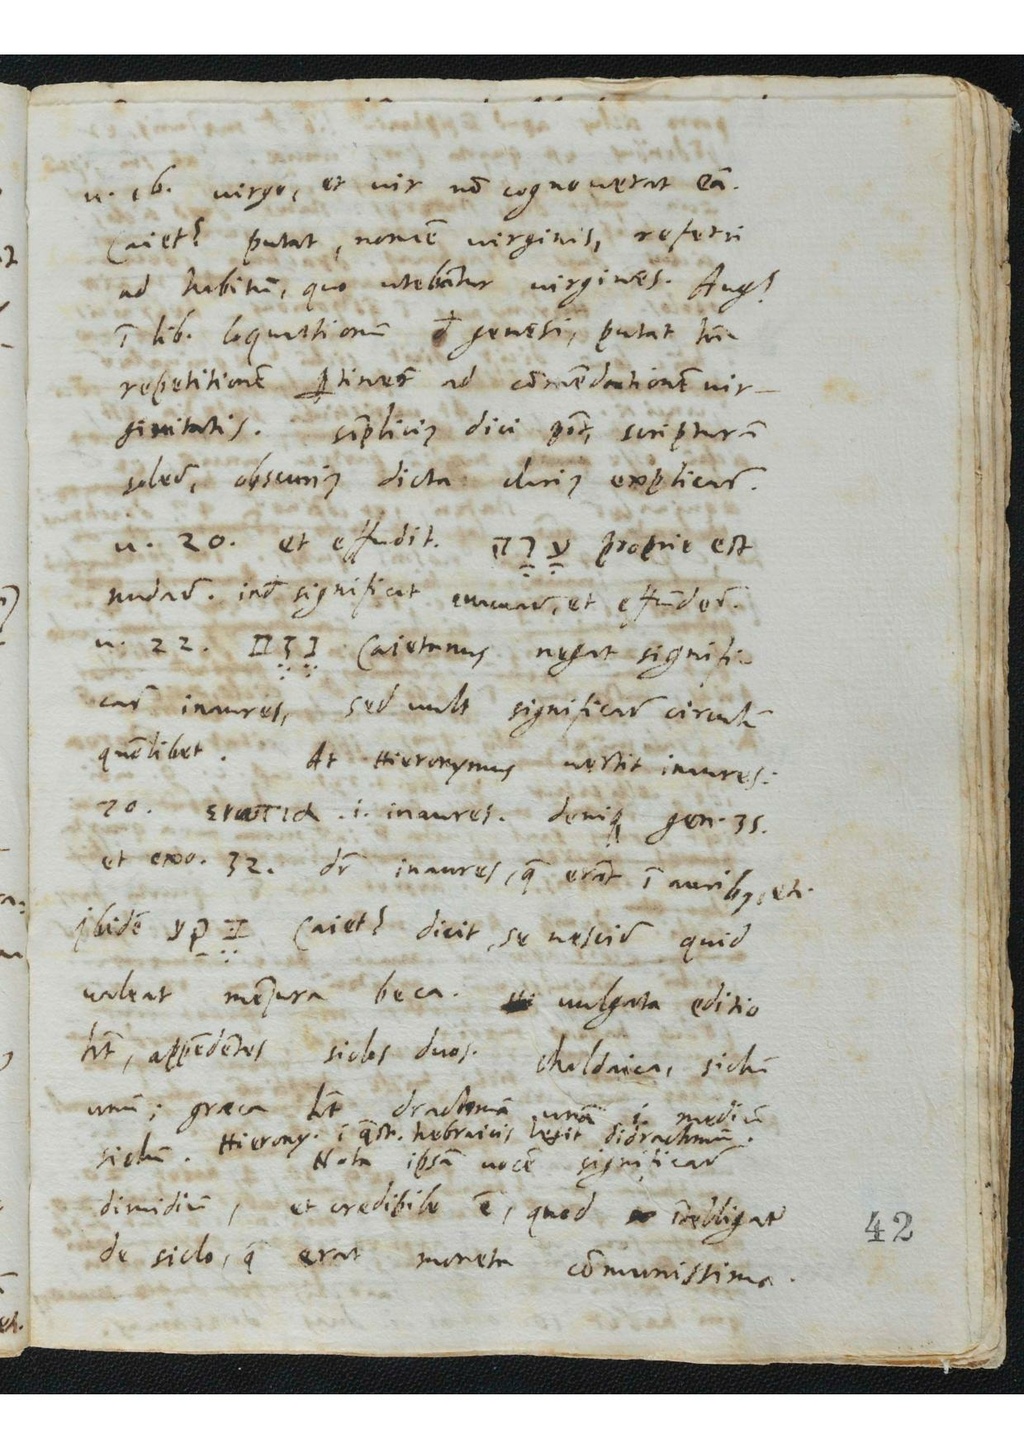 u. 16. uirgo, et uir nō cognouerat eā.
Caiet? putat, nomē uirginis, referri
ad habitū, quo utebātur uirgines. Aug?
ī lib. loquutionū d̄ genesi, putat hāc
repetitionē ꝑtiner̄ ad cōmēdationē uir-
ginitatis. sīpliciꝰ dici pōt, scripturā
soler̄, obscuriꝰ dicta clariꝰ explicar̄.
u. 20. et effudit. ערה proprie est
nudar̄. ind̄ significat euacuar̄, et effūder̄.
u. 22. נזם Caietanus negat signifi-
car̄ inaures, sed uult significar̄ circulū
quēlibet. At Hieronymus uertit inaures:
70. ενωτια .i. inaures. deniqꝫ gen. 35.
et exo. 32. dr̄ inaures, q̄ erāt ī auribꝰ, etc.
ibidē בקע Caiet? dicit, se nescir̄ quid
ualeat mēsura beca. uulgata editio
hēt, appēdētes siclos duos. chaldaica, siclū
unū; græca hēt drachmā unā .i. mediū
siclū. Hierony. ī q̄st. hebraicis legit didrachmū.
Nota ipsā uocē significar̄
dimidiū, et credibile ē, quod ītelligat̄
de siclo, q̄ erat moneta cōmunissima.
42